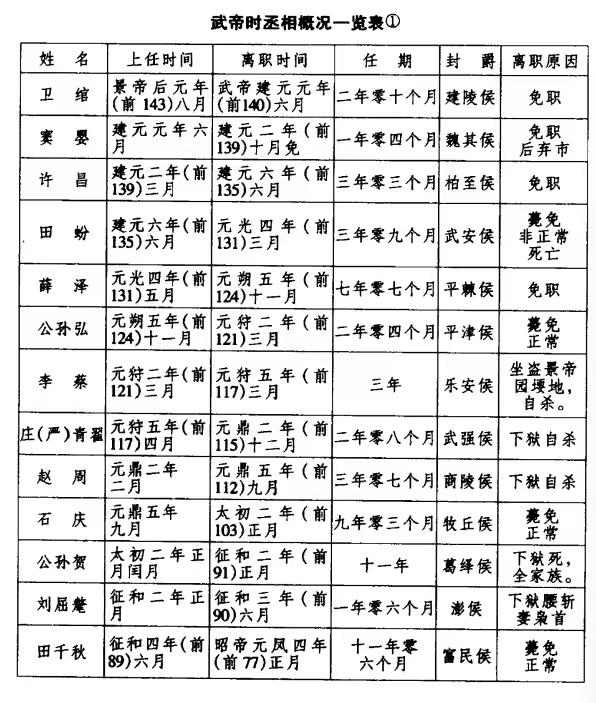 武帝时丞相概况一览表①
姓 名 上任时间 离职时间 任 期 封 爵 离职原因
卫 绾 景帝后元年(前143)八月 武帝建元元年(前140)六月 二年零十个月 建陵侯 免职
窦 婴 建元元年六月 建元二年(前139)十月免 一年零四个月 魏其侯 免职后弃市
许 昌 建元二年(前139)三月 建元六年(前135)六月 三年零三个月 柏至侯 免职
田 蚡 建元六年(前135)六月 元光四年(前131)三月 三年零九个月 武安侯 薨免非正常死亡
薛 泽 元光四年(前131)五月 元朔五年(前124)十一月 七年零七个月 平棘侯 免职
公孙弘 元朔五年(前124)十一月 元狩二年(前121)三月 二年零四个月 平津侯 薨免正常
李 蔡 元狩二年(前121)三月 元狩五年(前117)三月 三年 乐安侯 坐盗景帝园堧地,自杀。
庄(严)青翟 元狩五年(前117)四月 元鼎二年(前115)十二月 二年零八个月 武强侯 下狱自杀
赵 周 元鼎二年二月 元鼎五年(前112)九月 三年零七个月 商陵侯 下狱自杀
石 庆 元鼎五年九月 太初二年(前103)正月 九年零三个月 牧丘侯 薨免正常
公孙贺 太初二年正月闰月 征和二年(前91)正月 十一年 葛绎侯 下狱死,全家族。
刘屈氂 征和二年正月 征和三年(前90)六月 一年零六个月 澎侯 下狱腰斩妻枭首
田千秋 征和四年(前89)六月 昭帝元凤四年(前77)正月 十一年零六个月 富民侯 薨免正常